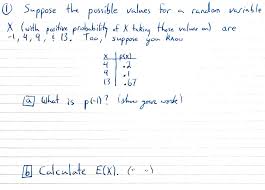 ① Suppose the possible values for a random variable
X (with positive probability of X taking those values on) are
-1, 4, 9, & 13. Too, suppose you know
X p(x)
4 .2
9 .1
13 .67
a What is p(-1)? (show your work)
b Calculate E(X).